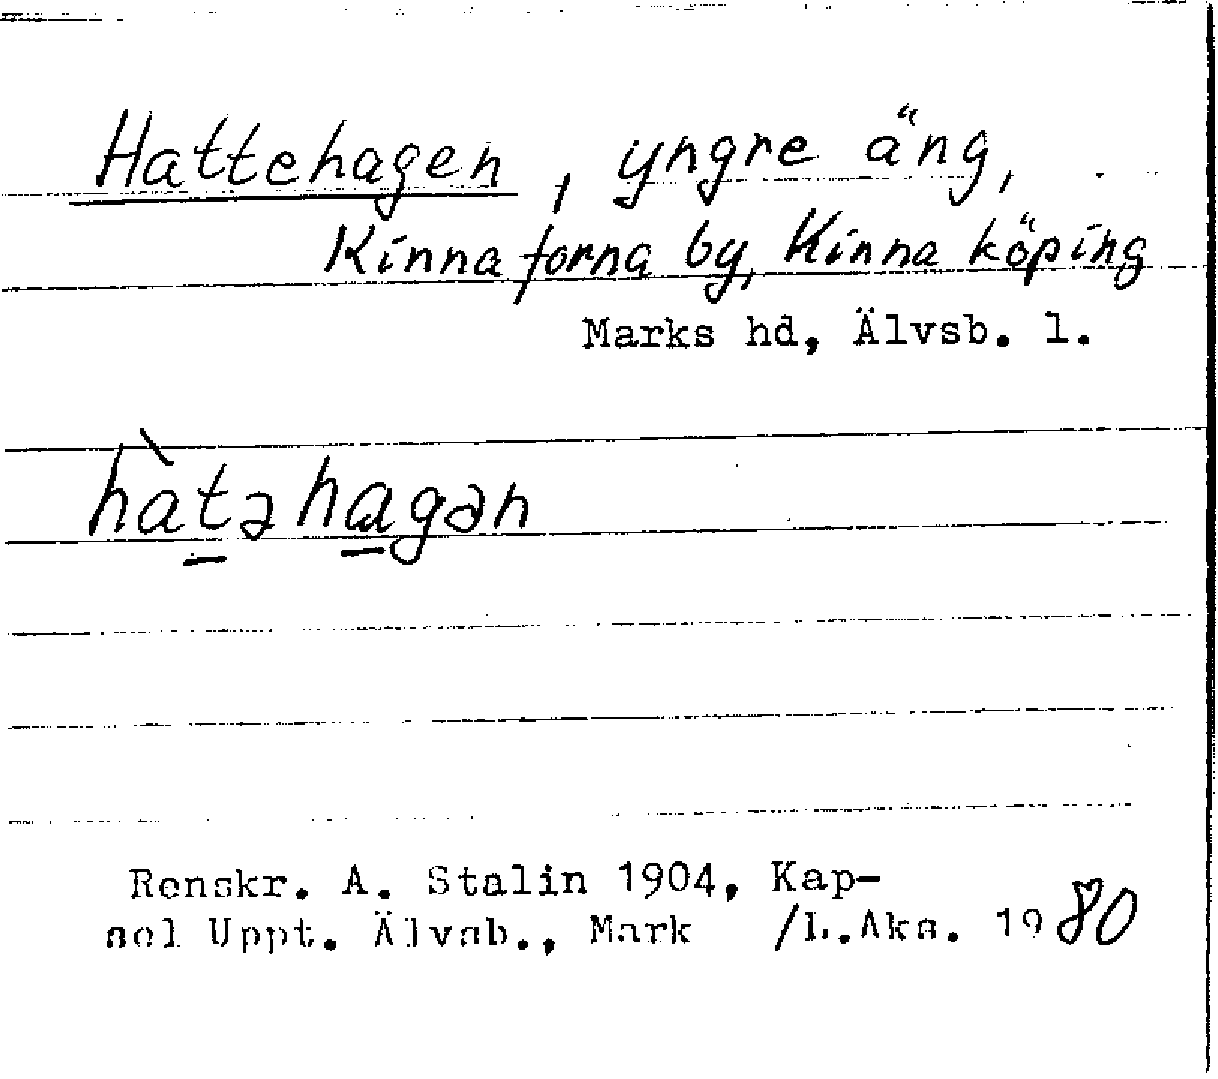 Hattehagen, yngre äng,
Kinna forna by, Kinna köping
Marks hd, Älvsb. l.
hàt̲əha̲gən
Renskr. A. Stalin 1904, Kap-
sel Uppt. Älvsb., Mark /L.Aks. 1980